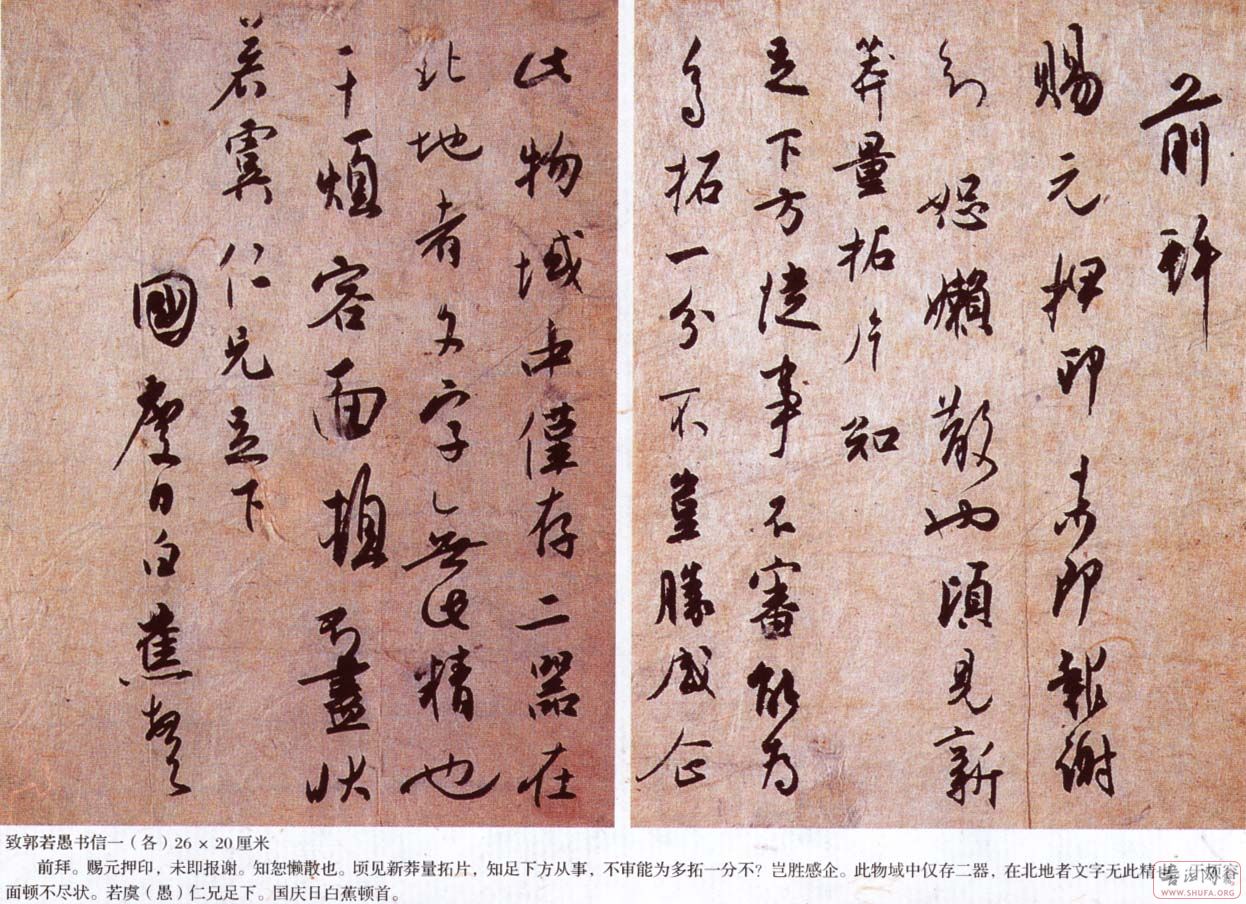 前拜
賜元押印未即報謝
知恕嬾散也頃見新
莽量拓片知
足下方從事不審能為
多拓一分不豈勝感企
此物域中僅存二器在
北地者文字無此精也
干煩容面不盡狀
若虞仁兄足下
國慶日白蕉頓首
致郭若愚书信一（各）26 × 20厘米
前拜。赐元押印，未即报谢。知恕懒散也。顷见新莽量拓片，知足下方从事，不审能为多拓一分不？岂胜感企。此物域中仅存二器，在北地者文字无此精也。干烦容
面顿不尽状。若虞（愚）仁兄足下。国庆日白蕉顿首。
书法网
WWW.SHUFA.ORG